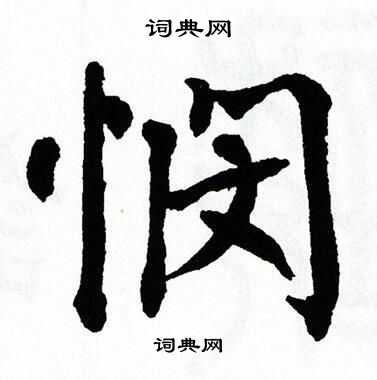 词典网
悯
词典网